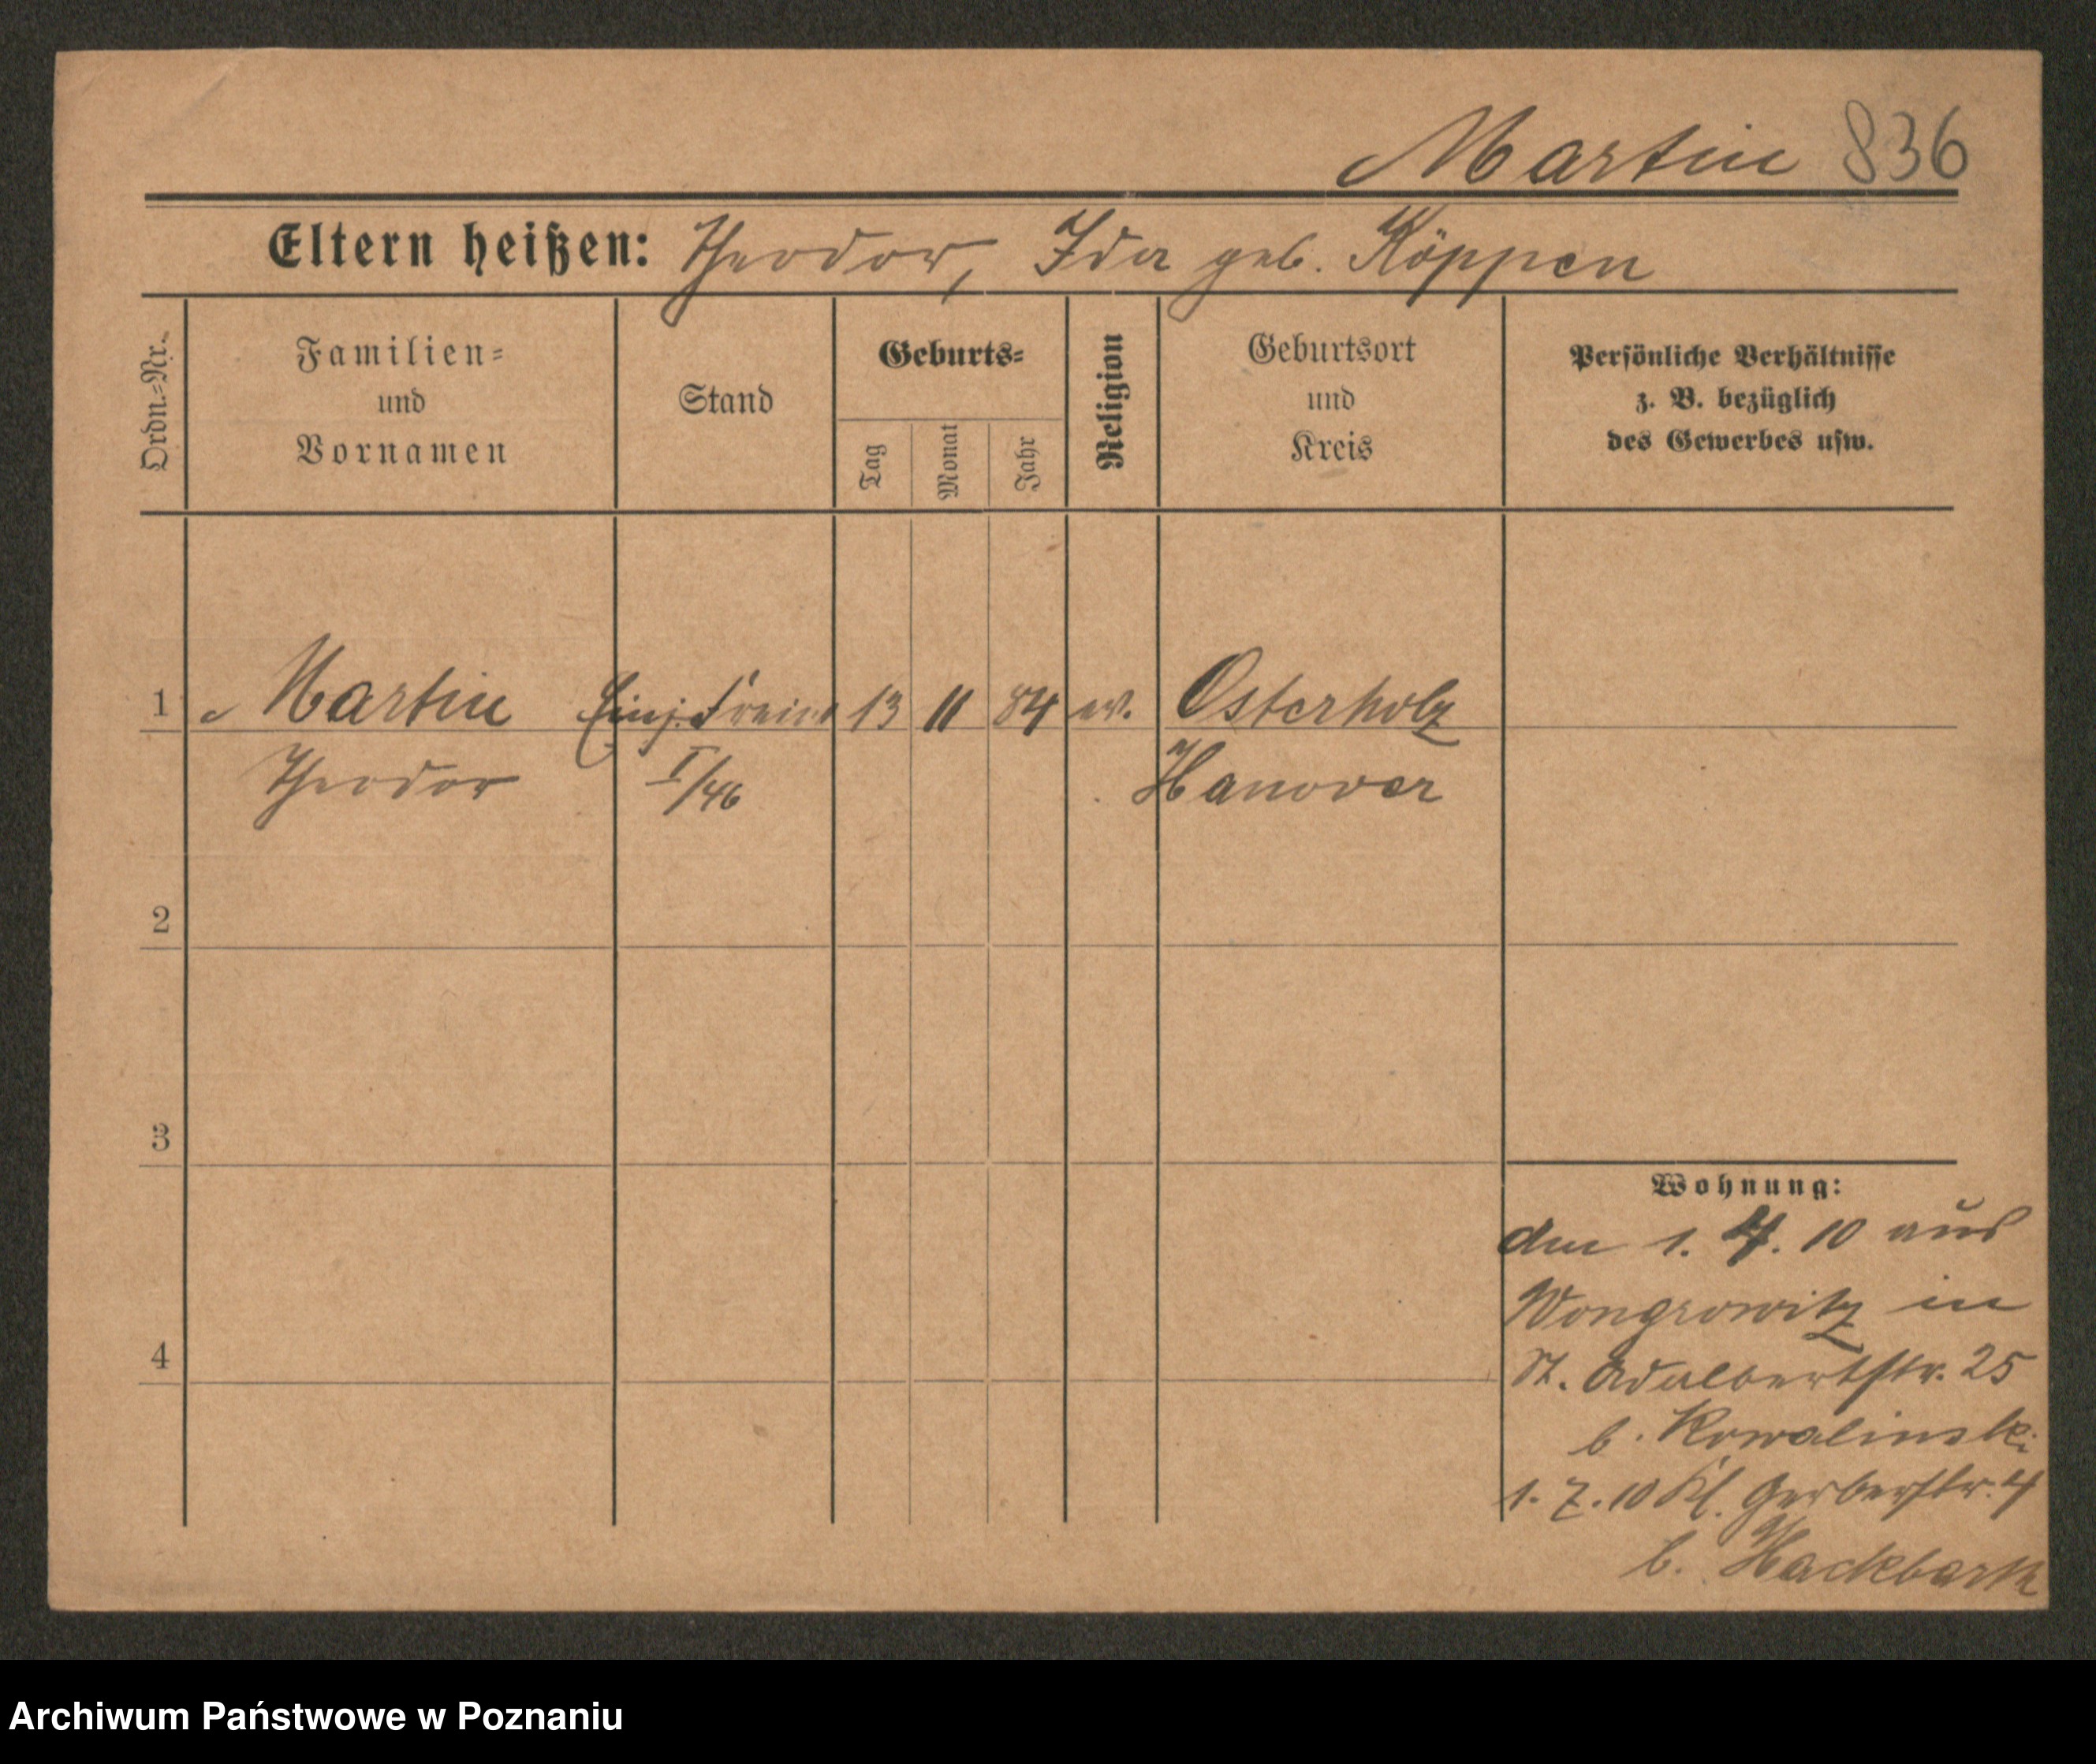 Martin 836
Eltern heißen: Theodor, Ida geb. Köppen
Ordn.-Nr.
Familien-
und
Vornamen
Stand
Geburts-
Tag
Monat
Jahr
Religion
Geburtsort
und
Kreis
Persönliche Verhältnisse
z. B. bezüglich
des Gewerbes usw.
1 Martin Einj. Freiw 13 11 84 ev. Osterholz
Theodor I/46 Hanover
2
3
4
Wohnung:
den 1. 4. 10 aus
Wongrowitz in
St. Adalbertstr. 25
b. Kowalinski
1. 7. 10 Kl. Gerberstr. 4
b. Hackbarth
Archiwum Państwowe w Poznaniu